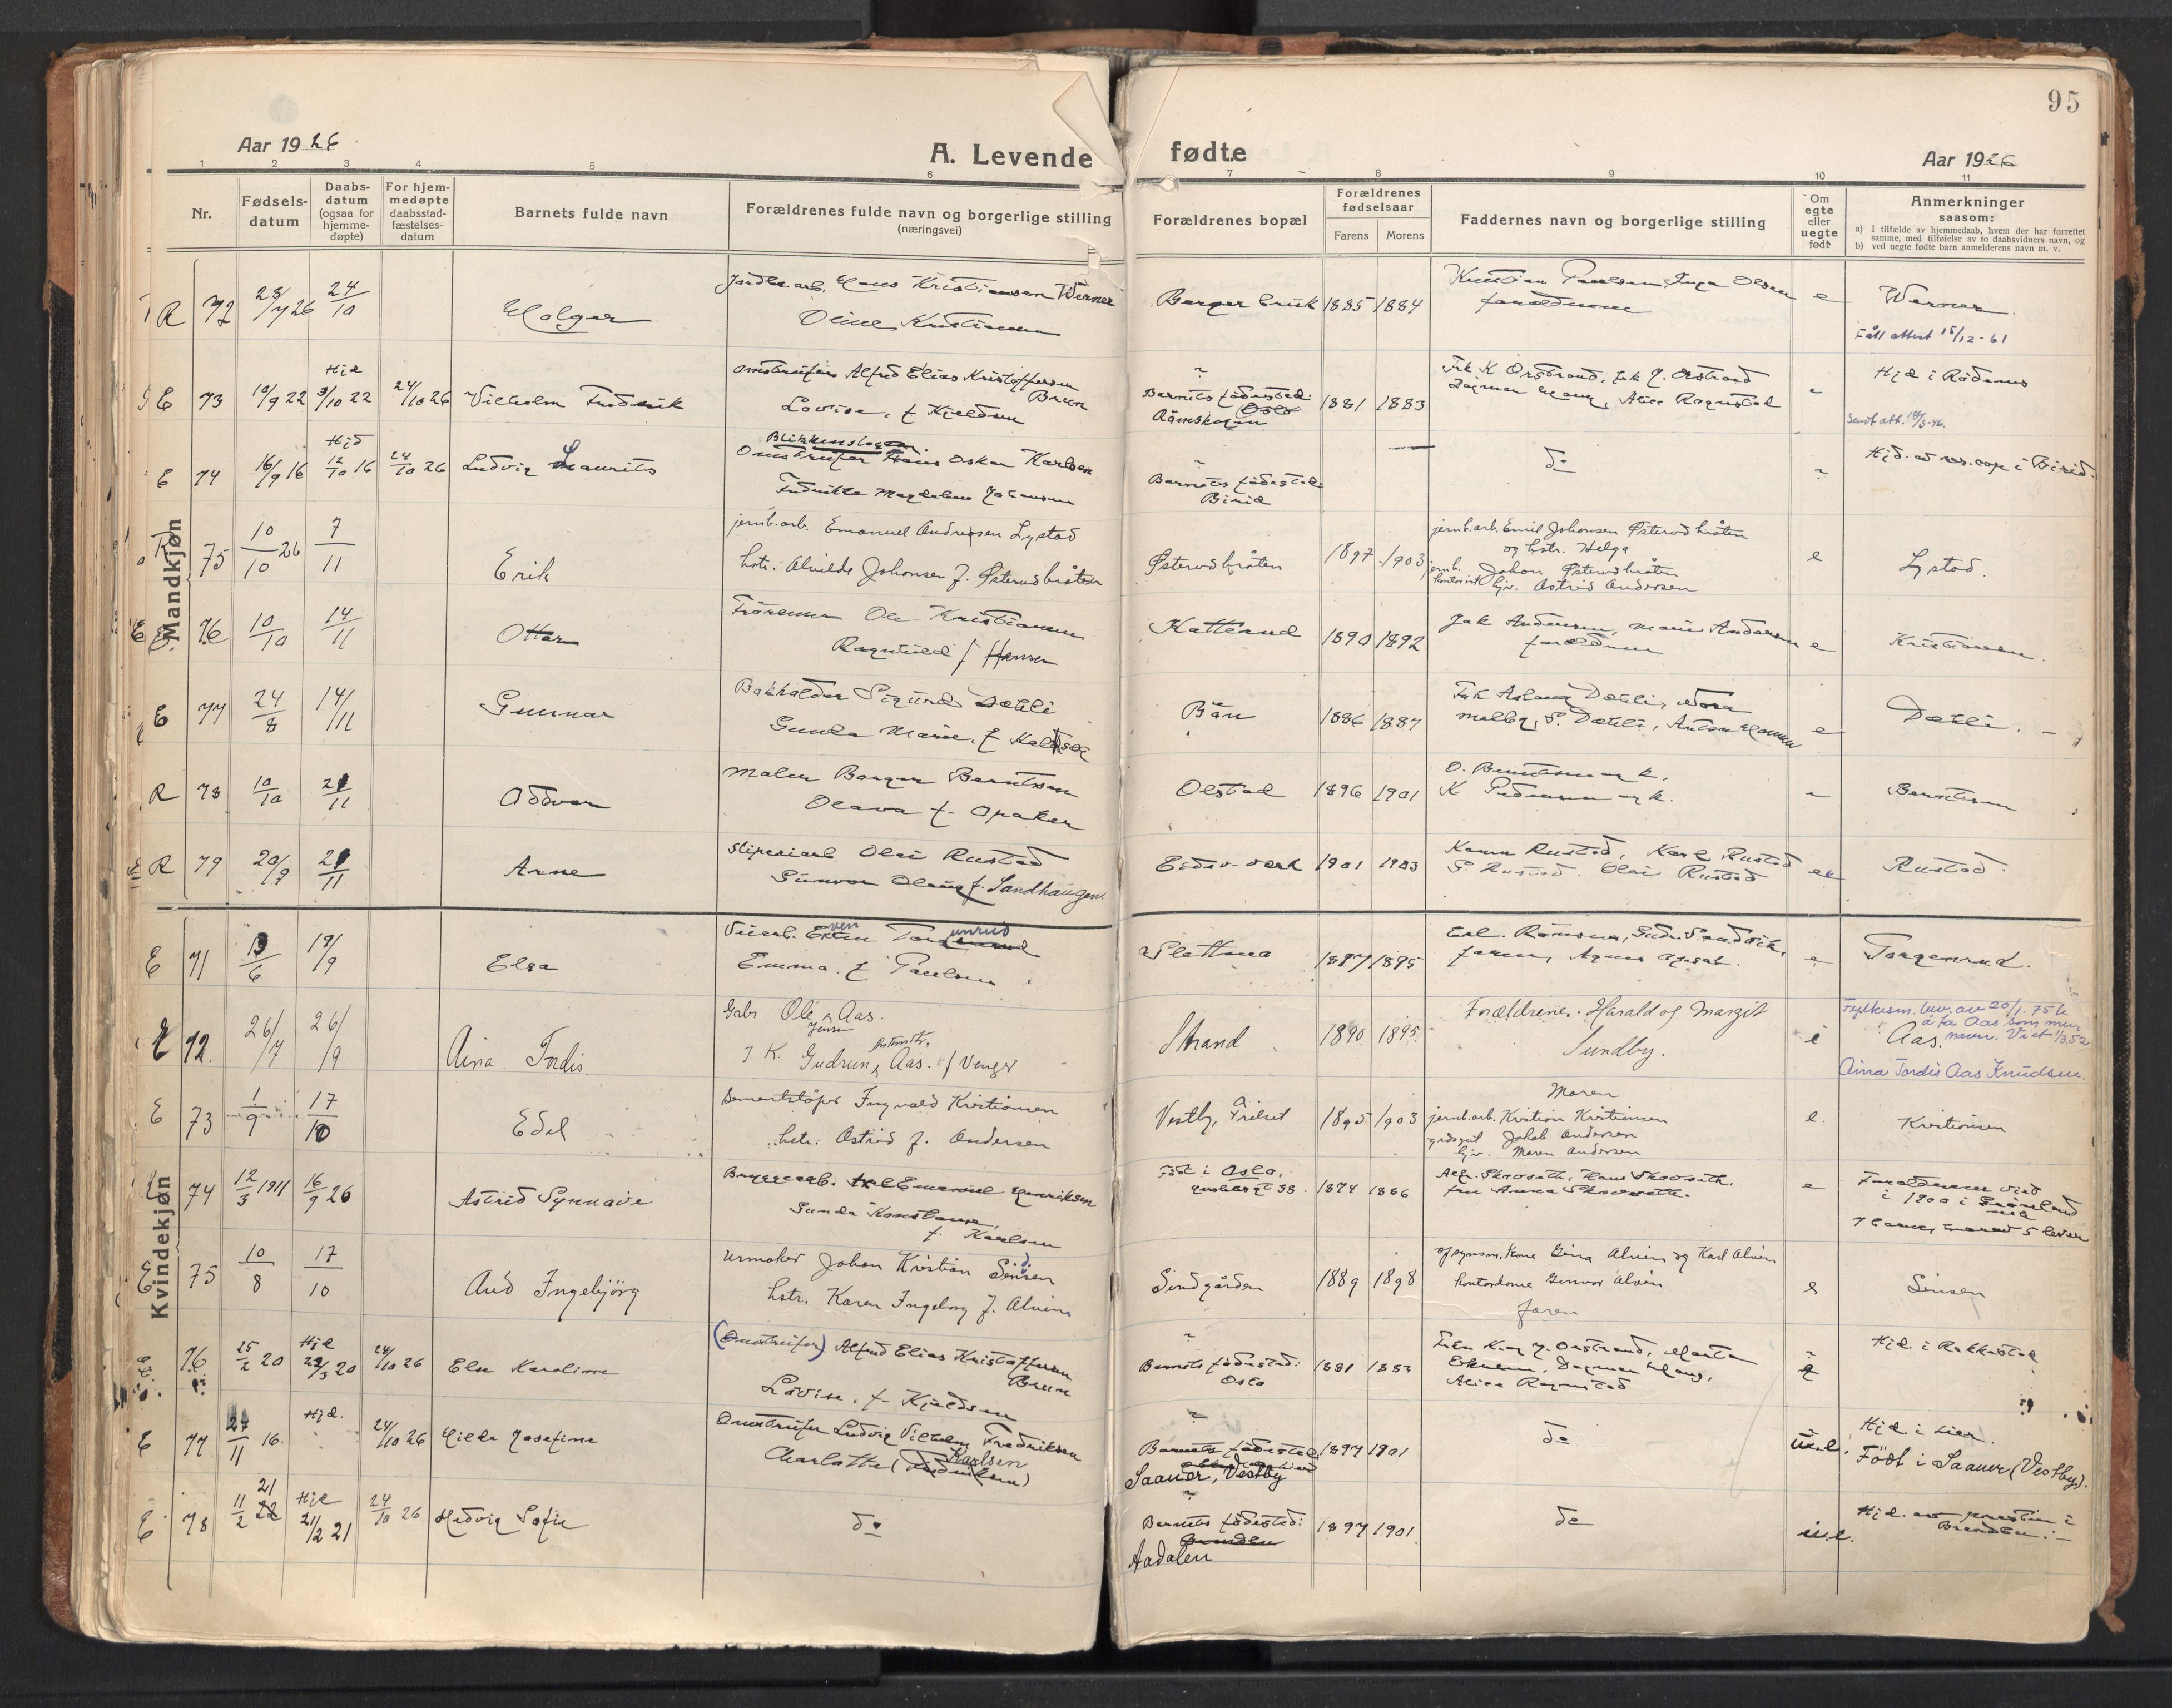 95
Aar 1926
A. Levende
fødte
Aar 1926
1 2 3 4 5 6 7 8 9 10 11
Nr.
Fødsels-
datum
Daabs-
datum
(ogsaa for
hjemme-
døpte)
For hjem-
medøpte
daabsstad-
fæstelses-
datum
Barnets fulde navn
Forældrenes fulde navn og borgerlige stilling
(næringsvei)
Forældrenes bopæl
Forældrenes
fødselsaar
Farens Morens
Faddernes navn og borgerlige stilling
Om
egte
eller
uegte
født
Anmerkninger
saasom:
a) I tilfælde av hjemmedaab, hvem der har forrettet
samme, med tilføielse av to daabsvidners navn, og
b) ved uegte fødte barn anmelderens navn m. v.
Mandkjøn
R 72 28/7 26 24/10 Holger
Jordbr.arb. Hans Kristiansen Werner
Oline Kristiansen
Borger bruk 1885 1884
Kristian Paulsen, Inga Olsen
forældrene
e Werner.
Fåll attest 15/12-61
E 73 19/9 22 Hjd 3/10 22 24/10 26 Vilhelm Fredrik
Omstreifer Alfred Elias Kristoffersen
Brun
Lovise, f. Kjeldsen
Barnets fødested:
Oslo
Rømskogen
1881 1883
Frk K Ørstrand, frk J. Ørstrand
Dagmar Haug, Alice Ragnstad
Hjd i Rødenes
Sendt att. 18/3-46.
E 74 16/9 16 Hjd 12/10 16 24/10 26 Ludvig Laurits
Blikkenslager
Omstreifer Frans Oskar Karlsen
Fredrikke Magdalene Johansen
Barnets fødested:
Birid
do
Hjd. av res.cap i Birid.
R 75 10/10 26 7/11 Erik
jernb.arb. Emanuel Andresen Lystad
hstr. Alvilde Johansen f. Østerudbråten
Østerudbråten 1897 1903
jernb.arb. Emil Johansen Østerudbråten
og hstr. Helga
jernb. Johan Østerudbråten
kontorist hjv. Astrid Andersen
e Lystad.
E 76 10/10 14/11 Ottar
Ole Kristiansen
Ragnhild f Hansen
Katterud 1890 1892
Jak Andersen, Marie Andersen
forældrene
e Kristiansen.
E 77 24/8 14/11 Gunnar
Bokholder Sigurd Dæhli
Gunda Marie, f.
Bøn 1886 1887
Frk Aslaug Dæhli, Nora
Melby, S. Dæhli, Anton Hansen
e Dæhli.
R 78 10/10 21/11 Oddvar
Maler Borger Berntsen
Olava f. Opaker
Olstad 1896 1901
O. Berntsen og k.
K Pedersen og k.
Berntsen
R 79 20/9 21/11 Arne
Sliperiarb Olai Rustad
Gunvor Olaug f. Sandhaugen.
Eidsv. værk 1901 1903
Karen Rustad, Karl Rustad
S. Rustad. Olai Rustad
Rustad.
Kvindekjøn
E 71 13/6 19/9 Elsa
Veiarb. Even Torgunrud
Emma, f Paulsen
Slettmo 1887 1895
faren, Agnes
e Torgunrud.
E 72. 26/7 26/9 Aina Tordis.
Gabr Ole Aas.
Jensen
Gudrun Aas. f Venger
Strand 1890 1895
Forældrene. Harald og Margit
Sundby.
Fylkesm. bev. av 20/1.75 til
å ta Aas som mellomnavn. Viet 1/3.52
Aas.
Aina Tordis Aas Knudsen.
E 73 1/9 17/10 Edel
Sementstøper Ingvald Kristiansen
hstr. Astrid f. Andersen
Vestby, Trilset 1895 1903
Moren
jernb.arb. Kristian Kristiansen
Jakob Andersen
hjv. Maren Andersen
e. Kristiansen
74 12/3 1911 16/9 26 Astrid Synnøve
Bryggearb. Karl Emanuel Henriksen
Gunda Konstanse,
f. Karlsen
Født i Oslo,
1874 1886
Alfr. Skovseth, Hans Skovseth.
fru Anna Skovseth.
e
Forældrene viet
i 1900 i Grønland
E 75 10/8 17/10 Aud Ingebjörg
Urmaker Johan Kristian Sinsen
hstr. Karen Ingeborg f. Alvim
Sundgården 1889 1898
opsynsm. kone Gina Alvim og Karl Alvim
kontordame Gunvor Alvim
faren
e Sinsen
76 25/2 20 Hjd 22/3 20 24/10 26 Else Karoline
(Omstreifer) Alfred Elias Kristoffersen
Brun
Lovise, f. Kjeldsen
Barnets fødested:
Oslo
1881 1883
Ørstrand, Marta
Dagmar Haug,
Alice Ragnstad
Hjd. i Rakkestad
E 77 27/11 16. Hjd. 24/10 26 Hilda Josefine
Omstreifer Ludvig Vilhelm Fredriksen
Karlsen
Charlotte (Fredriksen)
Barnets fødested:
Saaner, Vestby
1897 1901
do
u.e.
Hjd. i Lier.
Født i Saaner (Vestby).
E 78 11/2 21 Hjd 21/2 21 24/10 26 Hedvig Sofie
do
Barnets fødested:
Aadalen
1897 1901
do
u.e.
Hjd. av presten i
Brandbu.